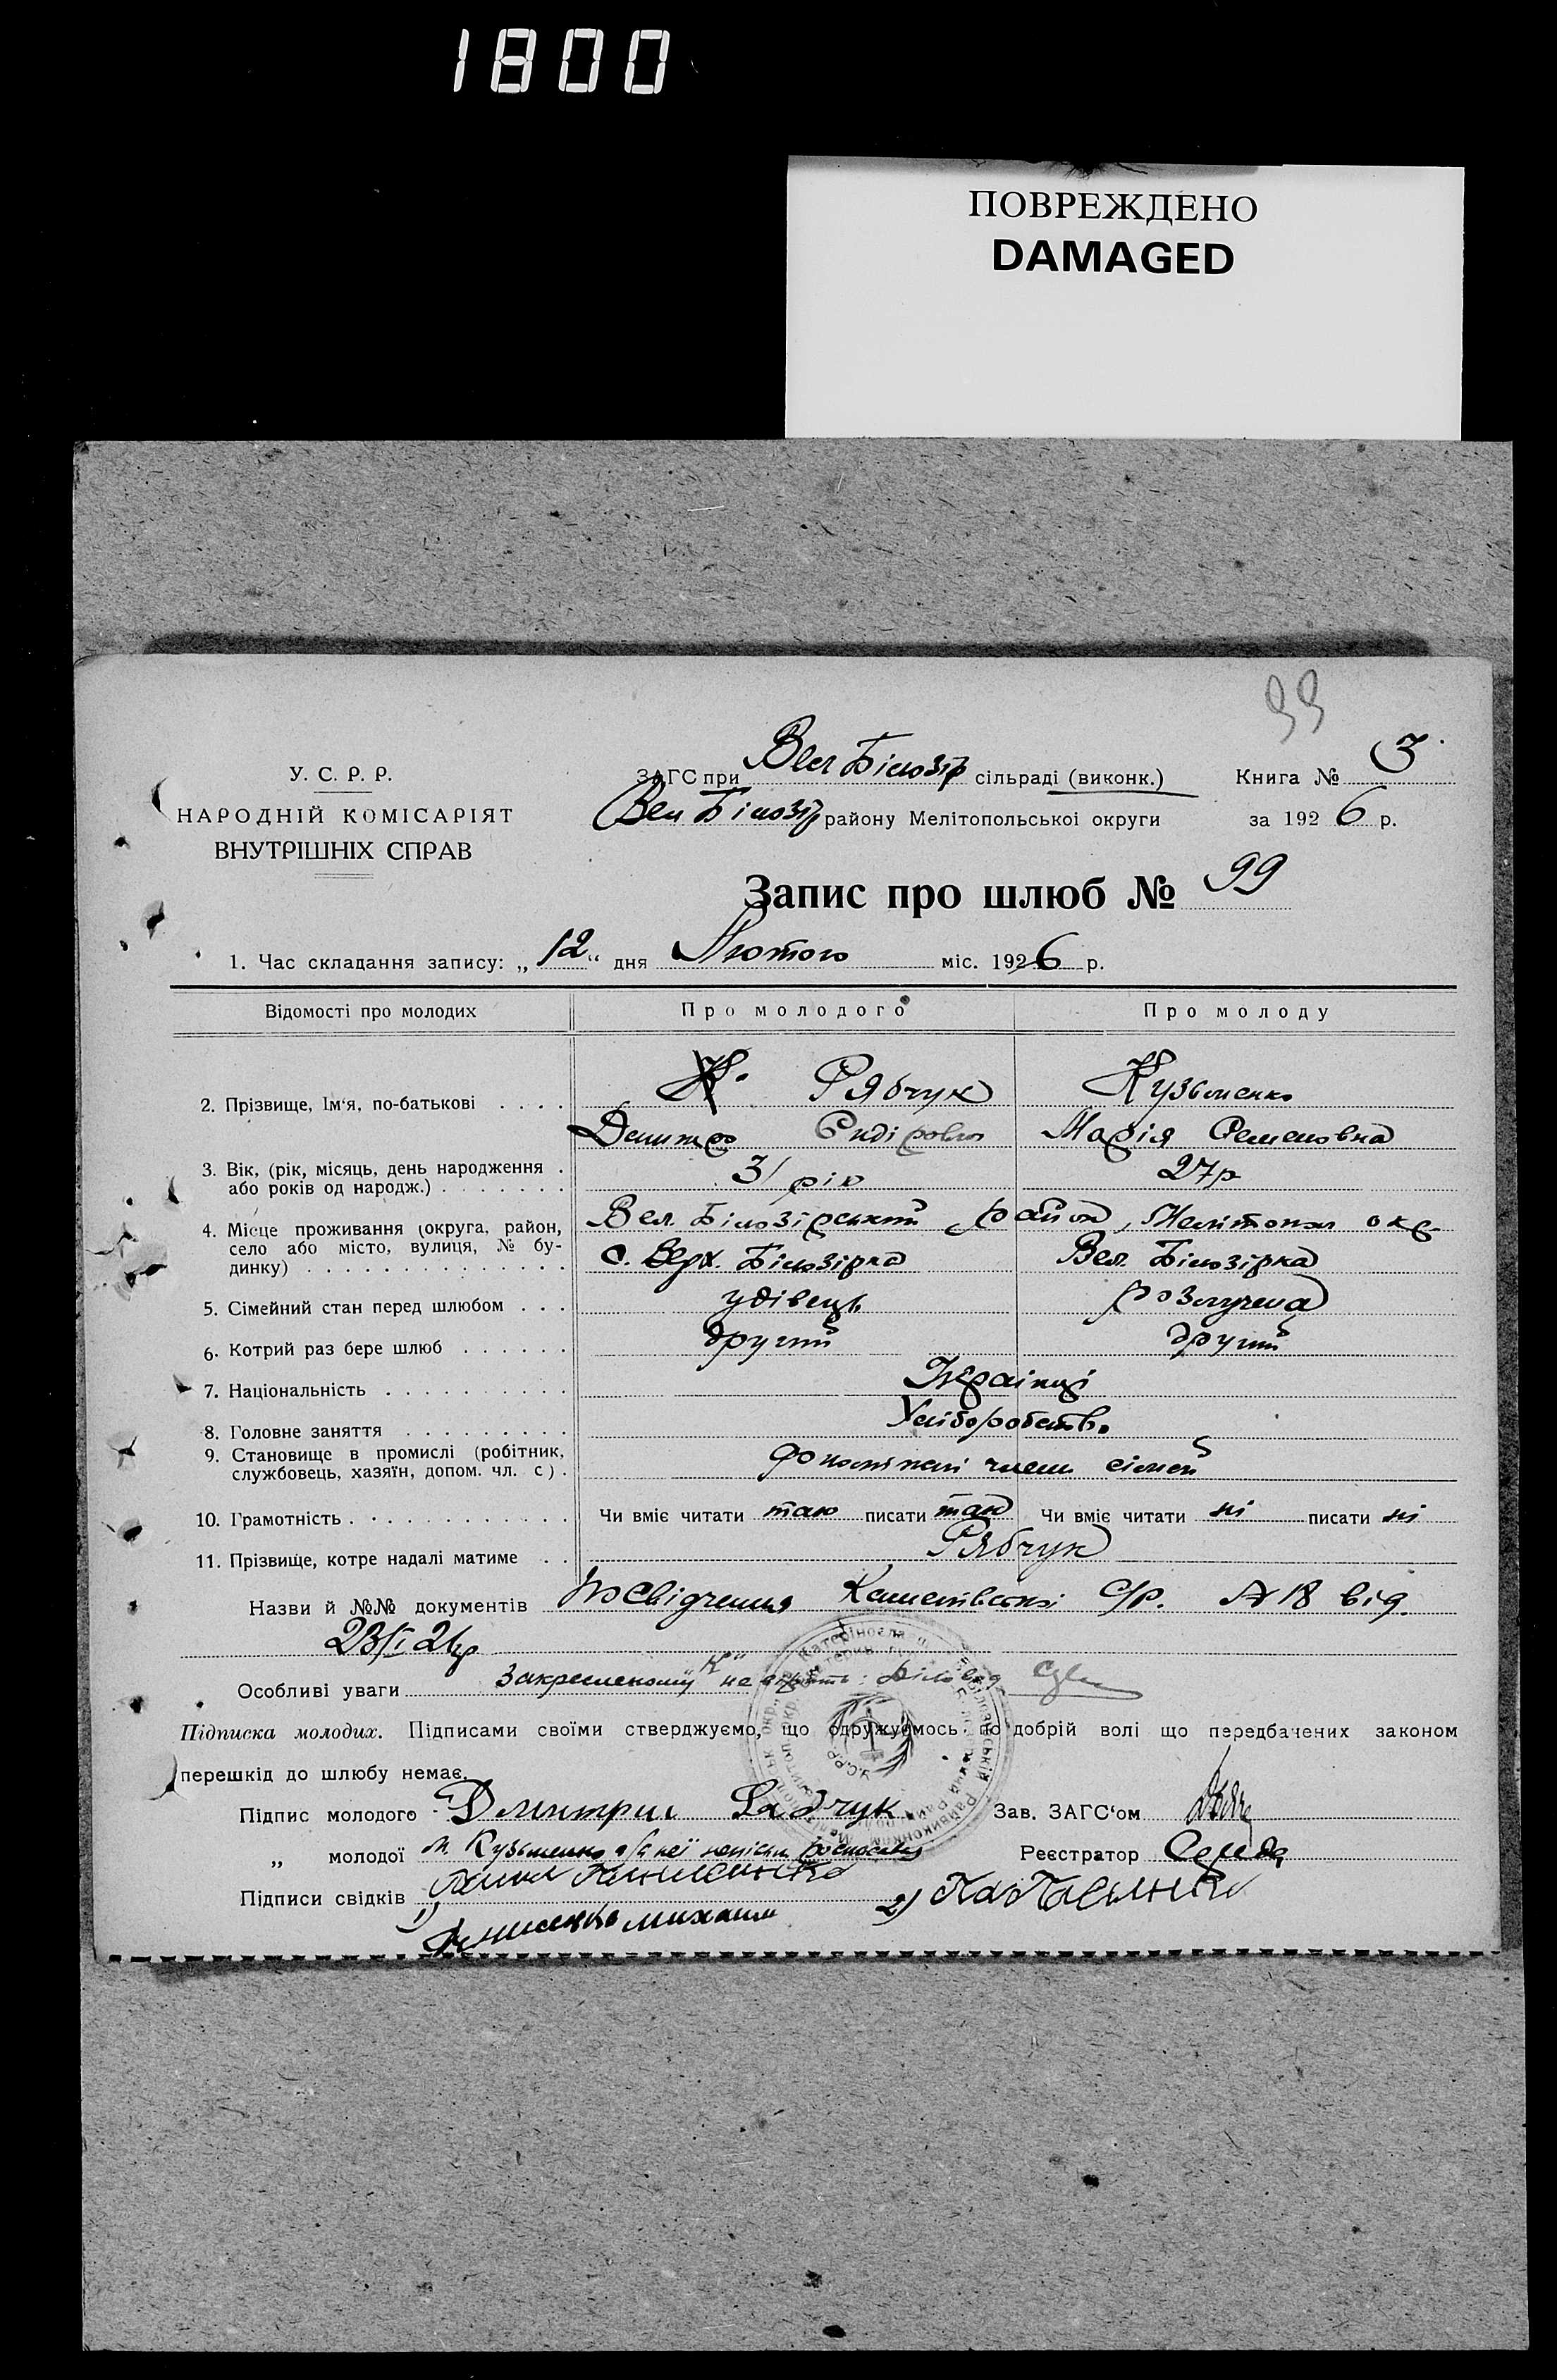 1800
ПОВРЕЖДЕНО
DAMAGED
99
У. С. Р. Р.
НАРОДНІЙ КОМІСАРІЯТ
ВНУТРІШНІХ СПРАВ
ЗАГС при Вел Білозір сільраді (виконк.) Книга № 3
Вел Білозір району Мелітопольської округи за 1926 р.
Запис про шлюб № 99
1. Час складання запису: „12“ дня Лютого міс. 1926 р.
Відомості про молодих Про молодого Про молоду
2. Прізвище, Ім'я, по-батькові . . . . К. Рябчук Кузьменко
Дмитро Марія Семеновна
3. Вік, (рік, місяць, день народження . або років од народж.) . . . . . . . 31 рік 27р
4. Місце проживання (округа, район, село або місто, вулиця, № бу-динку) . . . . . . . . . . . . . . Вел. Білозірський район, Мелітопол окр.
с. Верх. Білозірка Вел. Білозірка
5. Сімейний стан перед шлюбом . . . удівець розлучена
6. Котрий раз бере шлюб . . . . . . другий другий
7. Національність . . . . . . . . . . Українці
8. Головне заняття . . . . . . . . . Хліборобств.
9. Становище в промислі (робітник, службовець, хазяїн, допом. чл. с) . члени сімей
10. Грамотність . . . . . . . . . . . . Чи вміє читати так писати так Чи вміє читати ні писати ні
11. Прізвище, котре надалі матиме . . Рябчук
Назви й №№ документів Посвідчення С/Р. № 18 від.
23/I 26р
Особливі уваги Закресленому „К“ не
Підписка молодих. Підписами своїми стверджуємо, що одружуємось по добрій волі що передбачених законом
перешкід до шлюбу немає.
Підпис молодого Дмитрии Рябчук Зав. ЗАГС'ом
„ молодої М. Кузьменко Реєстратор Середа
Підписи свідків 1) 2)
Денисенко Михаил